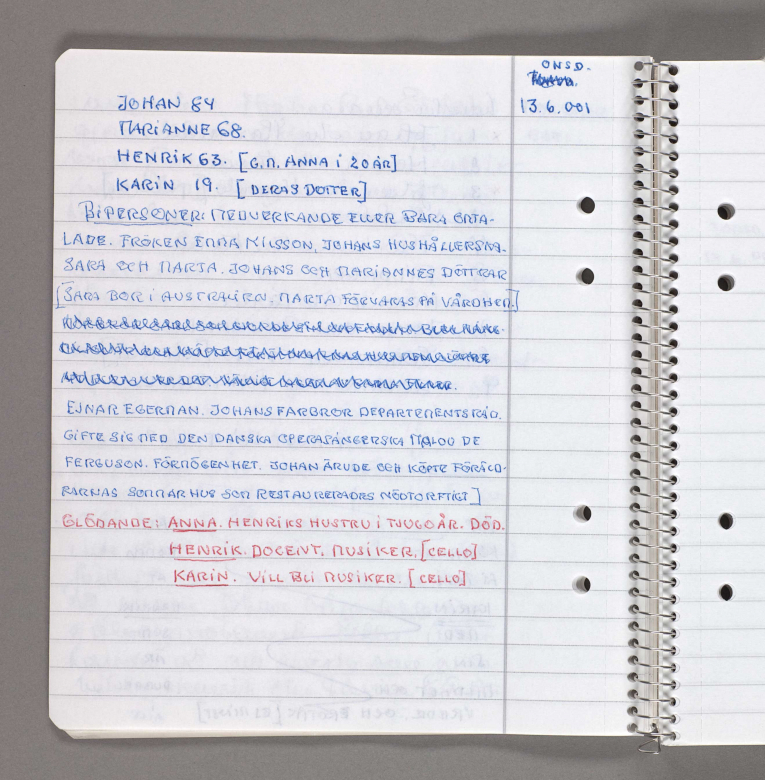 ONSD.
13.6.001
JOHAN 84
MARIANNE 68.
HENRIK 63. [G.M. ANNA I 20 ÅR]
KARIN 19. [DERAS DOTTER]
BIPERSONER: MEDVERKANDE ELLER BARA OMTA-
LADE. FRÖKEN EMMA NILSSON, JOHANS HUSHÅLLERSKA.
SARA OCH MARTA. JOHANS OCH MARIANNES DÖTTRAR
[SARA BOR I AUSTRALIEN. MARTA FÖRVARAS PÅ VÅRDHEM.]
EJNAR EGERMAN. JOHANS FARBROR DEPARTEMENTSRÅD.
GIFTE SIG MED DEN DANSKA OPERASÅNGERSKA MALOU DE
FERGUSON. FÖRMÖGENHET. JOHAN ÄRVDE OCH KÖPTE FÖRÄLD-
RARNAS SOMMARHUS SOM RESTAURERADES NÖDTORFTIGT]
GLÖDANDE: ANNA. HENRIKS HUSTRU I TJUGO ÅR. DÖD.
HENRIK. DOCENT. MUSIKER. [CELLO]
KARIN. VILL BLI MUSIKER. [CELLO]